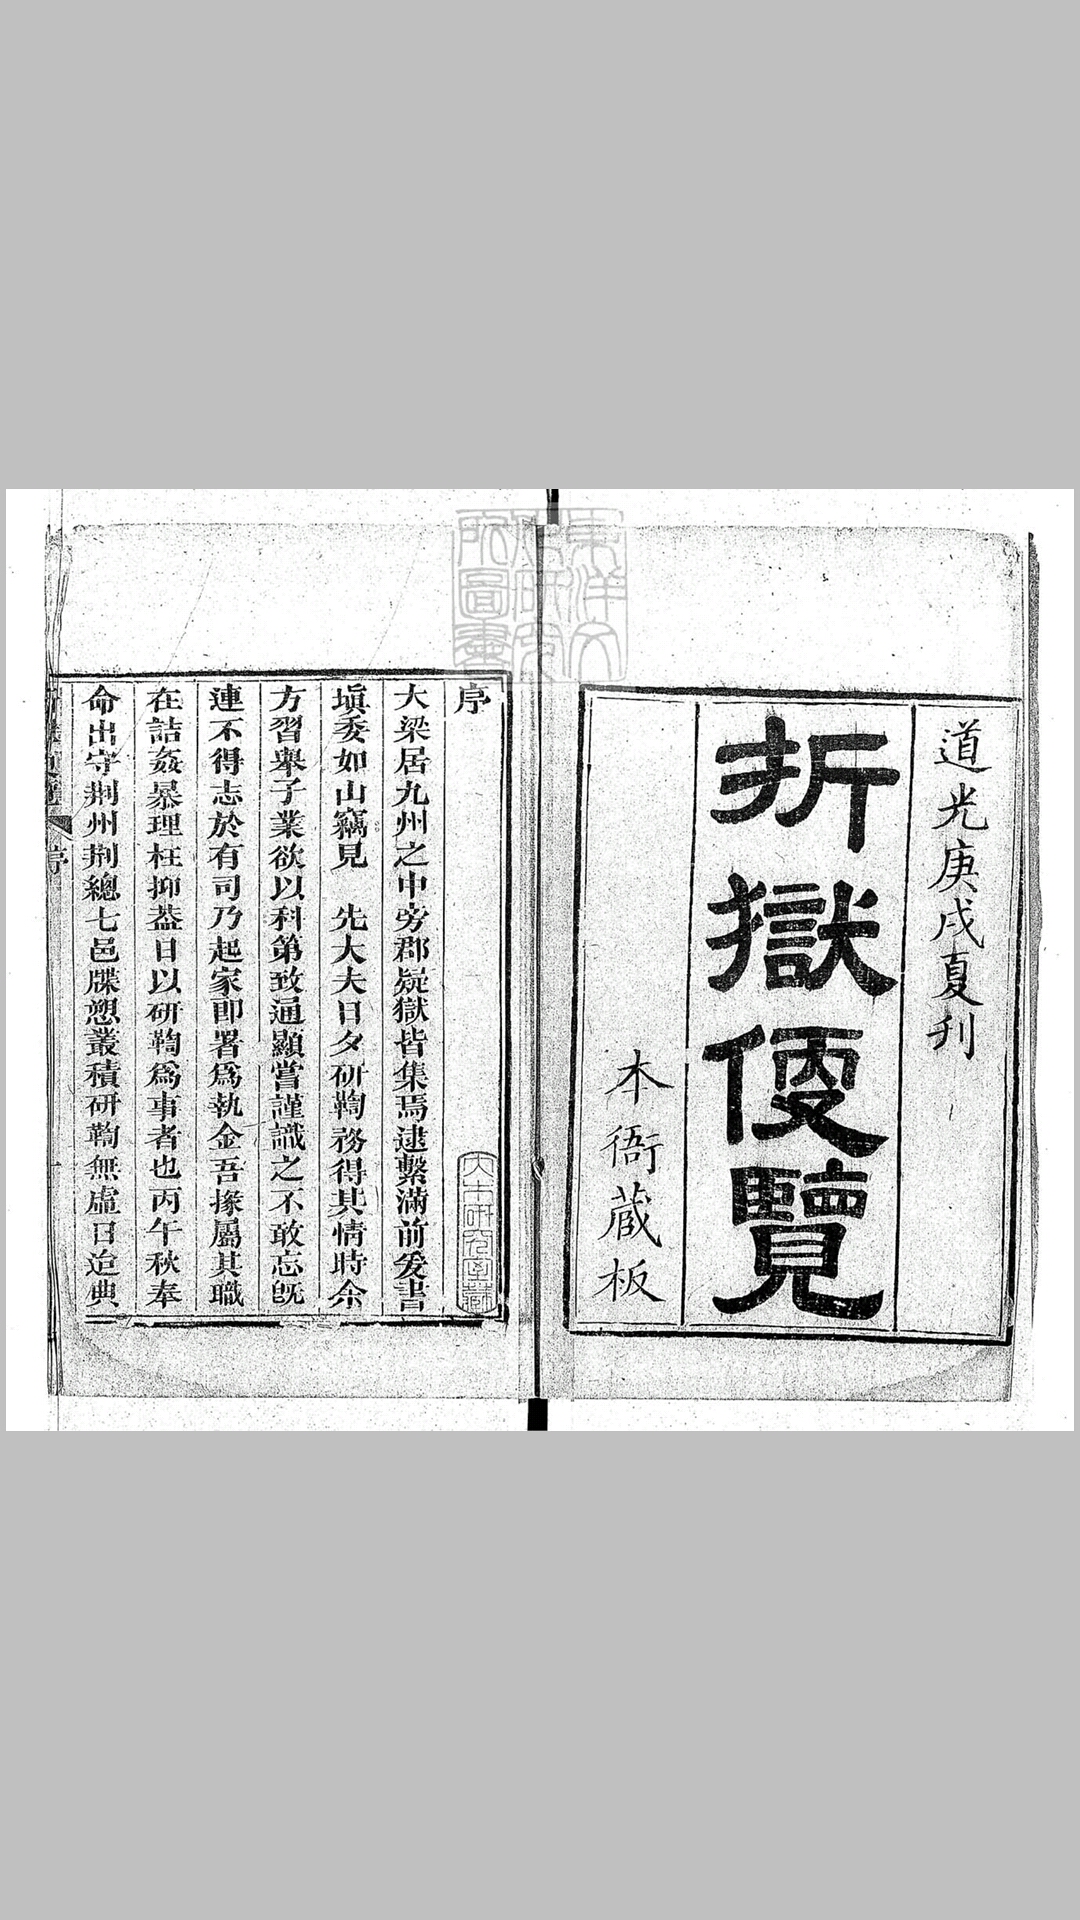 道光庚戌夏刋
折獄便覽
本衙藏板
序
大梁居九州之中旁郡疑獄皆集焉逮繫滿前爰書
塡委如山竊見 先大夫日夕研鞫務得其情時余
方習舉子業欲以科第致通顯嘗謹識之不敢忘旣
連不得志於有司乃起家郎署爲執金吾掾屬其職
在詰姦暴理枉抑葢日以研鞫爲事者也丙午秋奉
命出守荆州荆總七邑牒愬叢積研鞫無虛日迨典
序
東洋文化研究所圖書
大木研究室藏